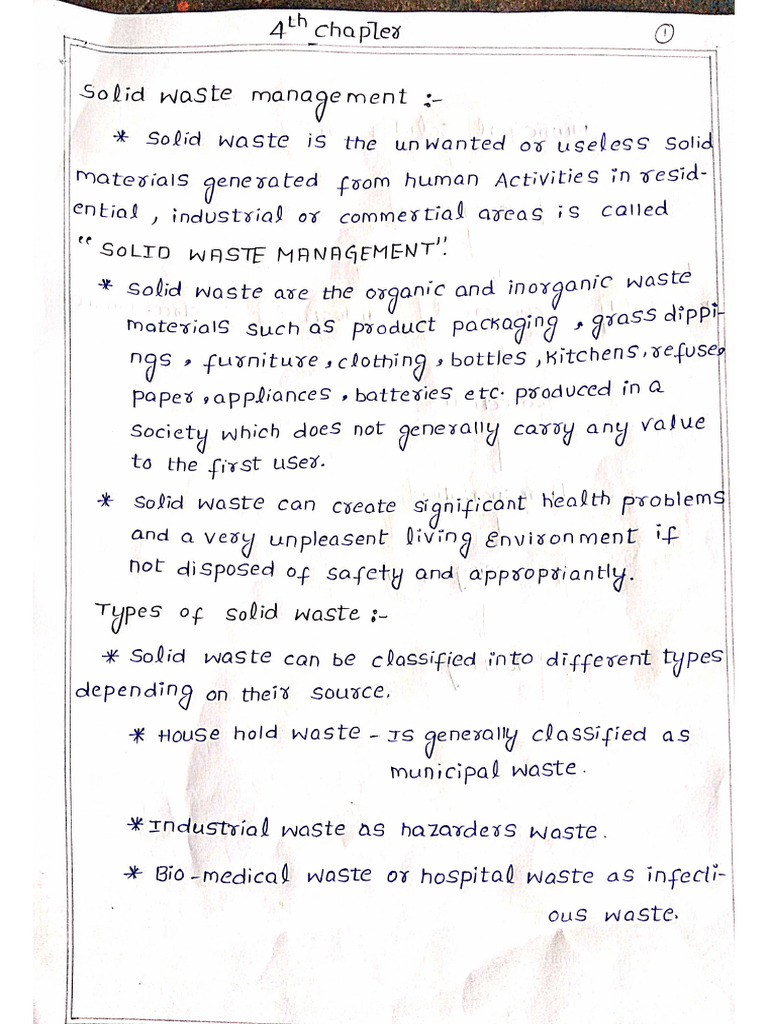 4th chapter
1
Solid waste management :-
* Solid waste is the unwanted or useless solid
materials generated from human Activities in resid-
ential, industrial or commertial areas is called
"SOLID WASTE MANAGEMENT".
* Solid waste are the organic and inorganic waste
materials such as product packaging, grass dippi-
ngs, furniture, clothing, bottles, kitchens, refuse,
paper, appliances, batteries etc. produced in a
society which does not generally carry any value
to the first user.
* Solid waste can create significant health problems
and a very unpleasent living Environment if
not disposed of safety and appropriantly.
Types of solid waste :-
* Solid waste can be classified into different types
depending on their source.
* House hold waste - Is generally classified as
municipal waste.
* Industrial waste as hazarders waste.
* Bio-medical waste or hospital waste as infecti-
ous waste.